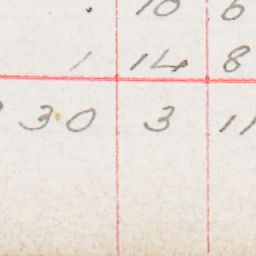 . 10 6
1 14 8
30 3 11